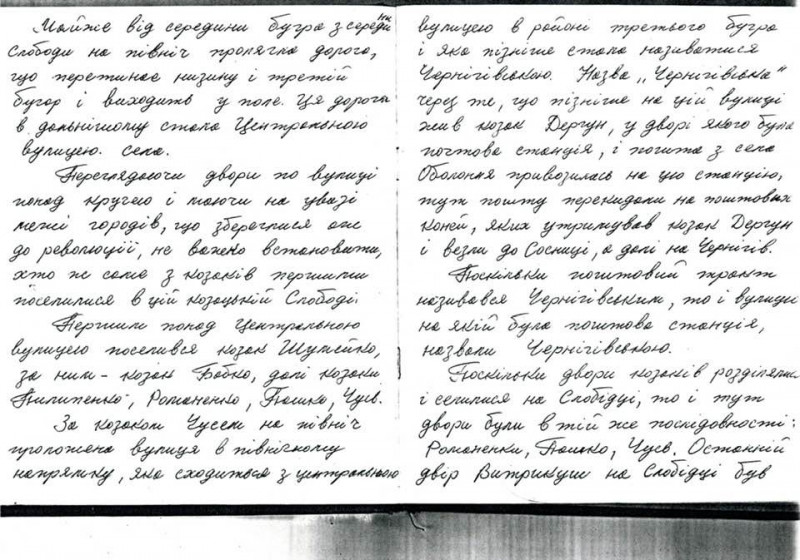 Майже від середини бугра з середини
Слободи на північ пролягла дорога,
що перетинає низину і третій
бугор і виходить у поле. Ця дорога
в дальнішому стала Центральною
вулицею. села.
Переглядаючи двори по вулиці
понад кручею і маючи на увазі
межі городів, що збереглися аж
до революції, не важко встановити,
хто ж саме з козаків першими
поселилися в цій козацькій Слободі.
Першим понад Центральною
вулицею поселився козак Шумейко,
за ним - козак Бобко, далі козаки
Пилипенко, Романенко, Пошко, Чуєв.
За козаком Чуєем на північ
проложена вулиця в північному
напрямку, яка сходиться з центральною
вулицею в районі третього бугра
і яка пізніше стала називатися
Чернігівською. Назва „Чернігівська"
через те, що пізніше на цій вулиці
жив козак Дергун, у дворі якого була
поштова станція, і пошта з села
Оболоння привозилась на цю станцію,
тут пошту перекидали на поштових
коней, яких утримував козак Дергун
і везли до Сосниці, а далі на Чернігів.
Поскільки поштовий тракт
називався Чернігівським, то і вулицю
на якій була поштова станція,
назвали Чернігівською.
Поскільки двори козаків розділялися
і селилися на Слобідці, то і тут
двори були в тій же послідовності:
Романенки, Пошко, Чуєв. Останній
двір Витрикуш на Слобідці був